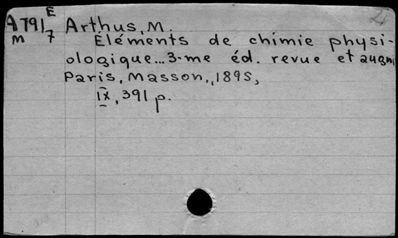 A791 E Arthus, M.
M 7 Eléments de chimie physi-
ologique...3-me éd. revue et augm.
Paris, Masson, 1895,
IX, 391 p.